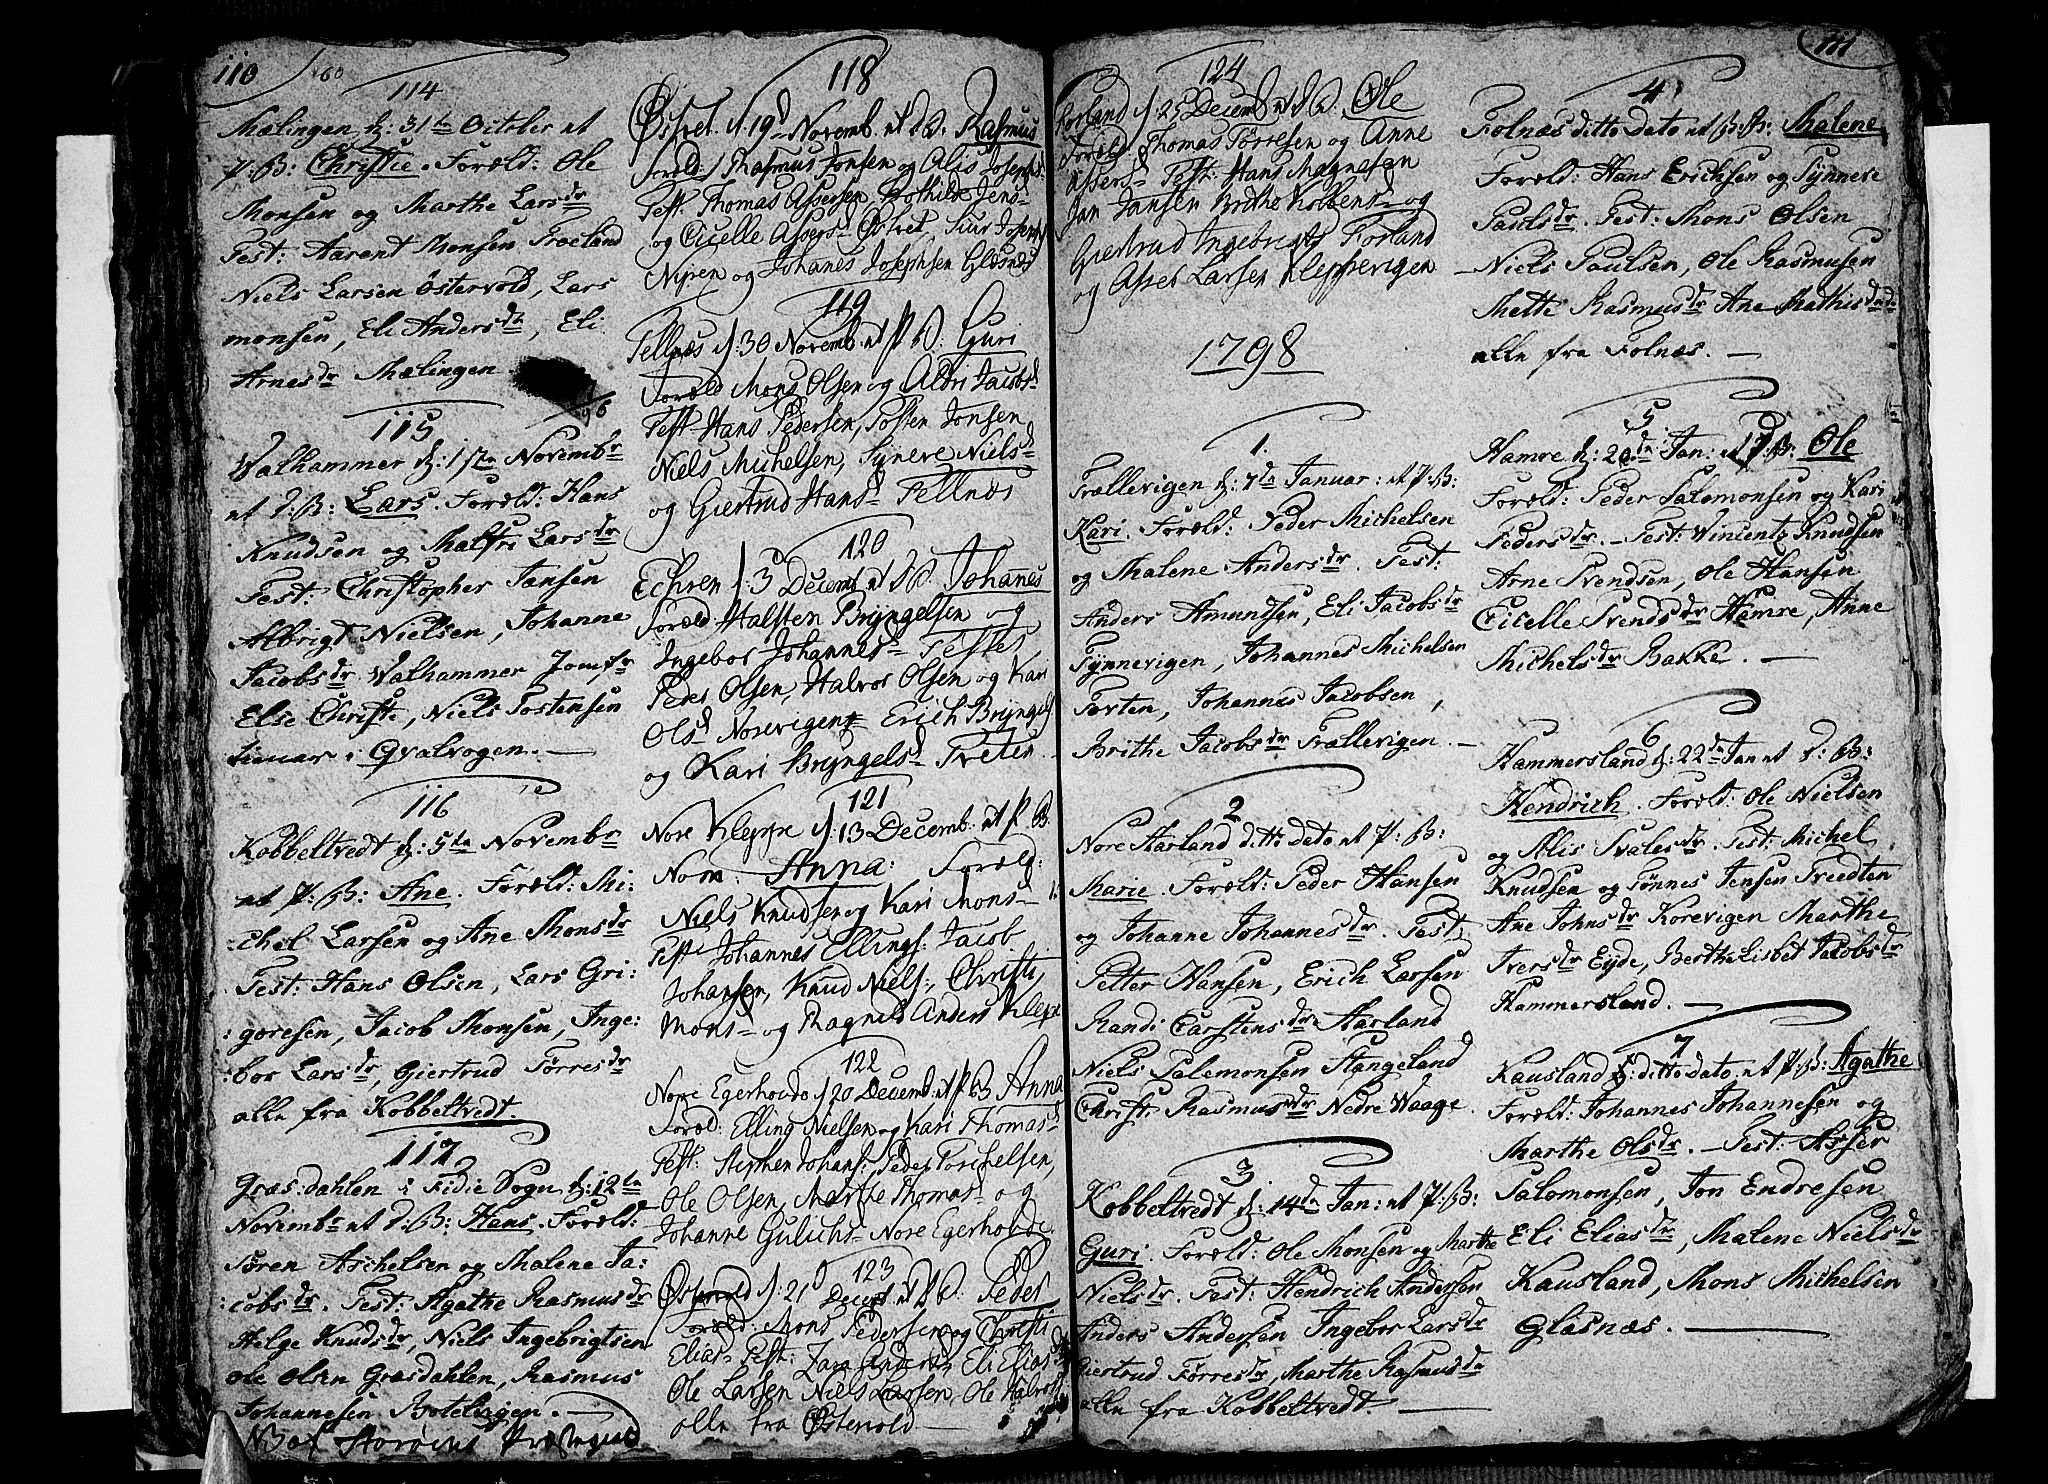 110
60
114
Mælingen d: 31te October at
P: B: Christie. Foræld: Ole
Monsen og Marthe Larsdr
Test: Aarent Monsen Træland
Niels Larsen Østervold, Lars
monsen, Eli Andersdtr, Eli
Arnesdr Mælingen
115
Walhammer d: 1ste Novembr
at d: B: Lars. Foræld: Hans
Knudsen og Malfri Larsdr
Test: Christopher Jansen
Albrigt Nielsen, Johanne
Jacobsdr Walhammer Jomfr
Else Christi, Niels Tostensen
tienar i Qvalvogen.
116
Kobbeltvedt d: 5te Novembr
at P: B: Ane. Foræld: Mi:
:chel Larsen og Ane Monsdr
Test: Hans Olsen, Lars Gri:
:goresen, Jacob Monsen, Inge:
:bor Larsdr, Giertrud Tørresdr
alle fra Kobbeltvedt.
117
Græsdahlen i Fidie Sogn d: 12te
Novembr at d: B: Hans. Foræld:
Søren Aschelsen og Malene Ja:
:cobsdr. Test: Agathe Rasmusdr
Helge Knudsdr, Niels Ingebrigtsen
Ole Olsen Græsdahlen, Rasmus
Johannesen Botelvigen.
118
Østret d. 19d Novemb. at d B. Rasmus
Foræld: Rasmus Jonsen og Alis Josephs
Test: Thomas Assersen, Bothilde Jens
og Cicelle Assersd Østret, Siur Josephs
Nipen og Johanes Josephsen Glæsnæs
119
Tellnæs d: 30 Novemb. at P B. Guri
Foræld Mons Olsen og Aldri Jacobsd
Test Hans Pedersen, Tosten Jonsen
Niels Michelsen, Syneve Nielsd
og Giertrud Hansd Tellnæs
120
Echren d. 3d Decemb at d B. Johanes
Foræld: Halsten Bryngelsen og
Ingebor Johannesd Testes
Peder Olsen, Halvor Olsen og Kari
Olsd Norevigen Erich Bryngels
og Kari Bryngelsd Treten
121
Nore Kleppe d. 13 Decemb. at P B
Nom: Anna: Foræld:
Niels Knudsen og Kari Monsd
Test Johannes Ellings: Jacob
Johansen, Knud Niels:, Christi
Monsd og Ragnild Anders Kleppe
122
Nore Egerhovde d 20 Decemb. at P B Anna
Foræld: Elling Nielsen og Kari Thomasd
Test: Stephen Johans: Peder Torchelsen,
Ole Olsen, Marthe Thomasd og
Johanne Gulichsd Nore Egerhovde
123
Østervold d. 21d Decemb at d B. Peder
Foræld: Mons Pedersen og Christi
Eliasd Test: Zara Andersd Eli Eliasd
Ole Larsen Niels Larsen, Ole Halvors
alle fra Østervold
124
Forland d. 25 Decemb at d B. Ole
Foræld. Thomas Tørresen og Anne
Assersd Test: Hans Magnesen
Jan Jansen Brithe Kolbensd og
Giertrud Ingebrigts Forland
og Asser Larsen Kleppevigen
1798
1.
Trællevigen d: 7de Januar: at P: B:
Kari. Foræld: Peder Michelsen
og Malene Andersdr. Test:
Anders Amundsen, Eli Jacobsdr
Tynnevigen, Johannes Michelsen
Torten, Johannes Jacobsen,
Brithe Jacobsdr Trællevigen.
2
Nore Aarland ditto dato at P: B:
Marie. Foræld: Peder Hansen
og Johanne Johannesdr. Test:
Petter Hansen, Erich Larsen
Randi Carstensdr Aarland
Niels Salemonsen Stangeland
Christi Rasmusdr Nedre Waage.
3
Kobbeltvedt d: 14de Jan: at P: B:
Guri. Foræld: Ole Monsen og Marthe
Nielsdr. Test: Hendrich Andersen
Anders Andersen Ingebor Larsdr
Giertrud Tørresdr, Marthe Rasmusdr
alle fra Kobbeltvedt.
111
4
Folnæs ditto Dato at P: B: Malene
Foræld: Hans Erichsen og Synneve
Paulsdr. Test: Mons Olsen
Niels Paulsen, Ole Rasmusen
Mette Rasmusdr Ane Mathisdr
alle fra Folnæs.
5
Hamre d: 20de Jan: at P: B: Ole
Foræld: Peder Salomonsen og Kari
Pedersdr. Test: Wincentz Knudsen
Arne Svendsen, Ole Hansen
Cicelle Svendsdr Hamre, Anne
Michelsdr Bakke.
6
Hammersland d: 22de Jan at d: B:
Hendrich. Foræld: Ole Nielsen
og Alis Svalesdr. Test: Michel
Knudsen og Tønnes Jensen Treedten
Ane Johnsdr Korevigen Marthe
Iversdr Eyde, Berthe Lisbet Jacobsdr
Hammersland.
7
Kausland d: ditto dato at P: B: Agathe
Foræld: Johannes Johannesen og
Marthe Olsdr. Test: Asser
Salomonsen, Jon Endresen
Eli Eliasdr, Malene Nielsdr
Kausland, Mons Michelsen
Glasnæs.